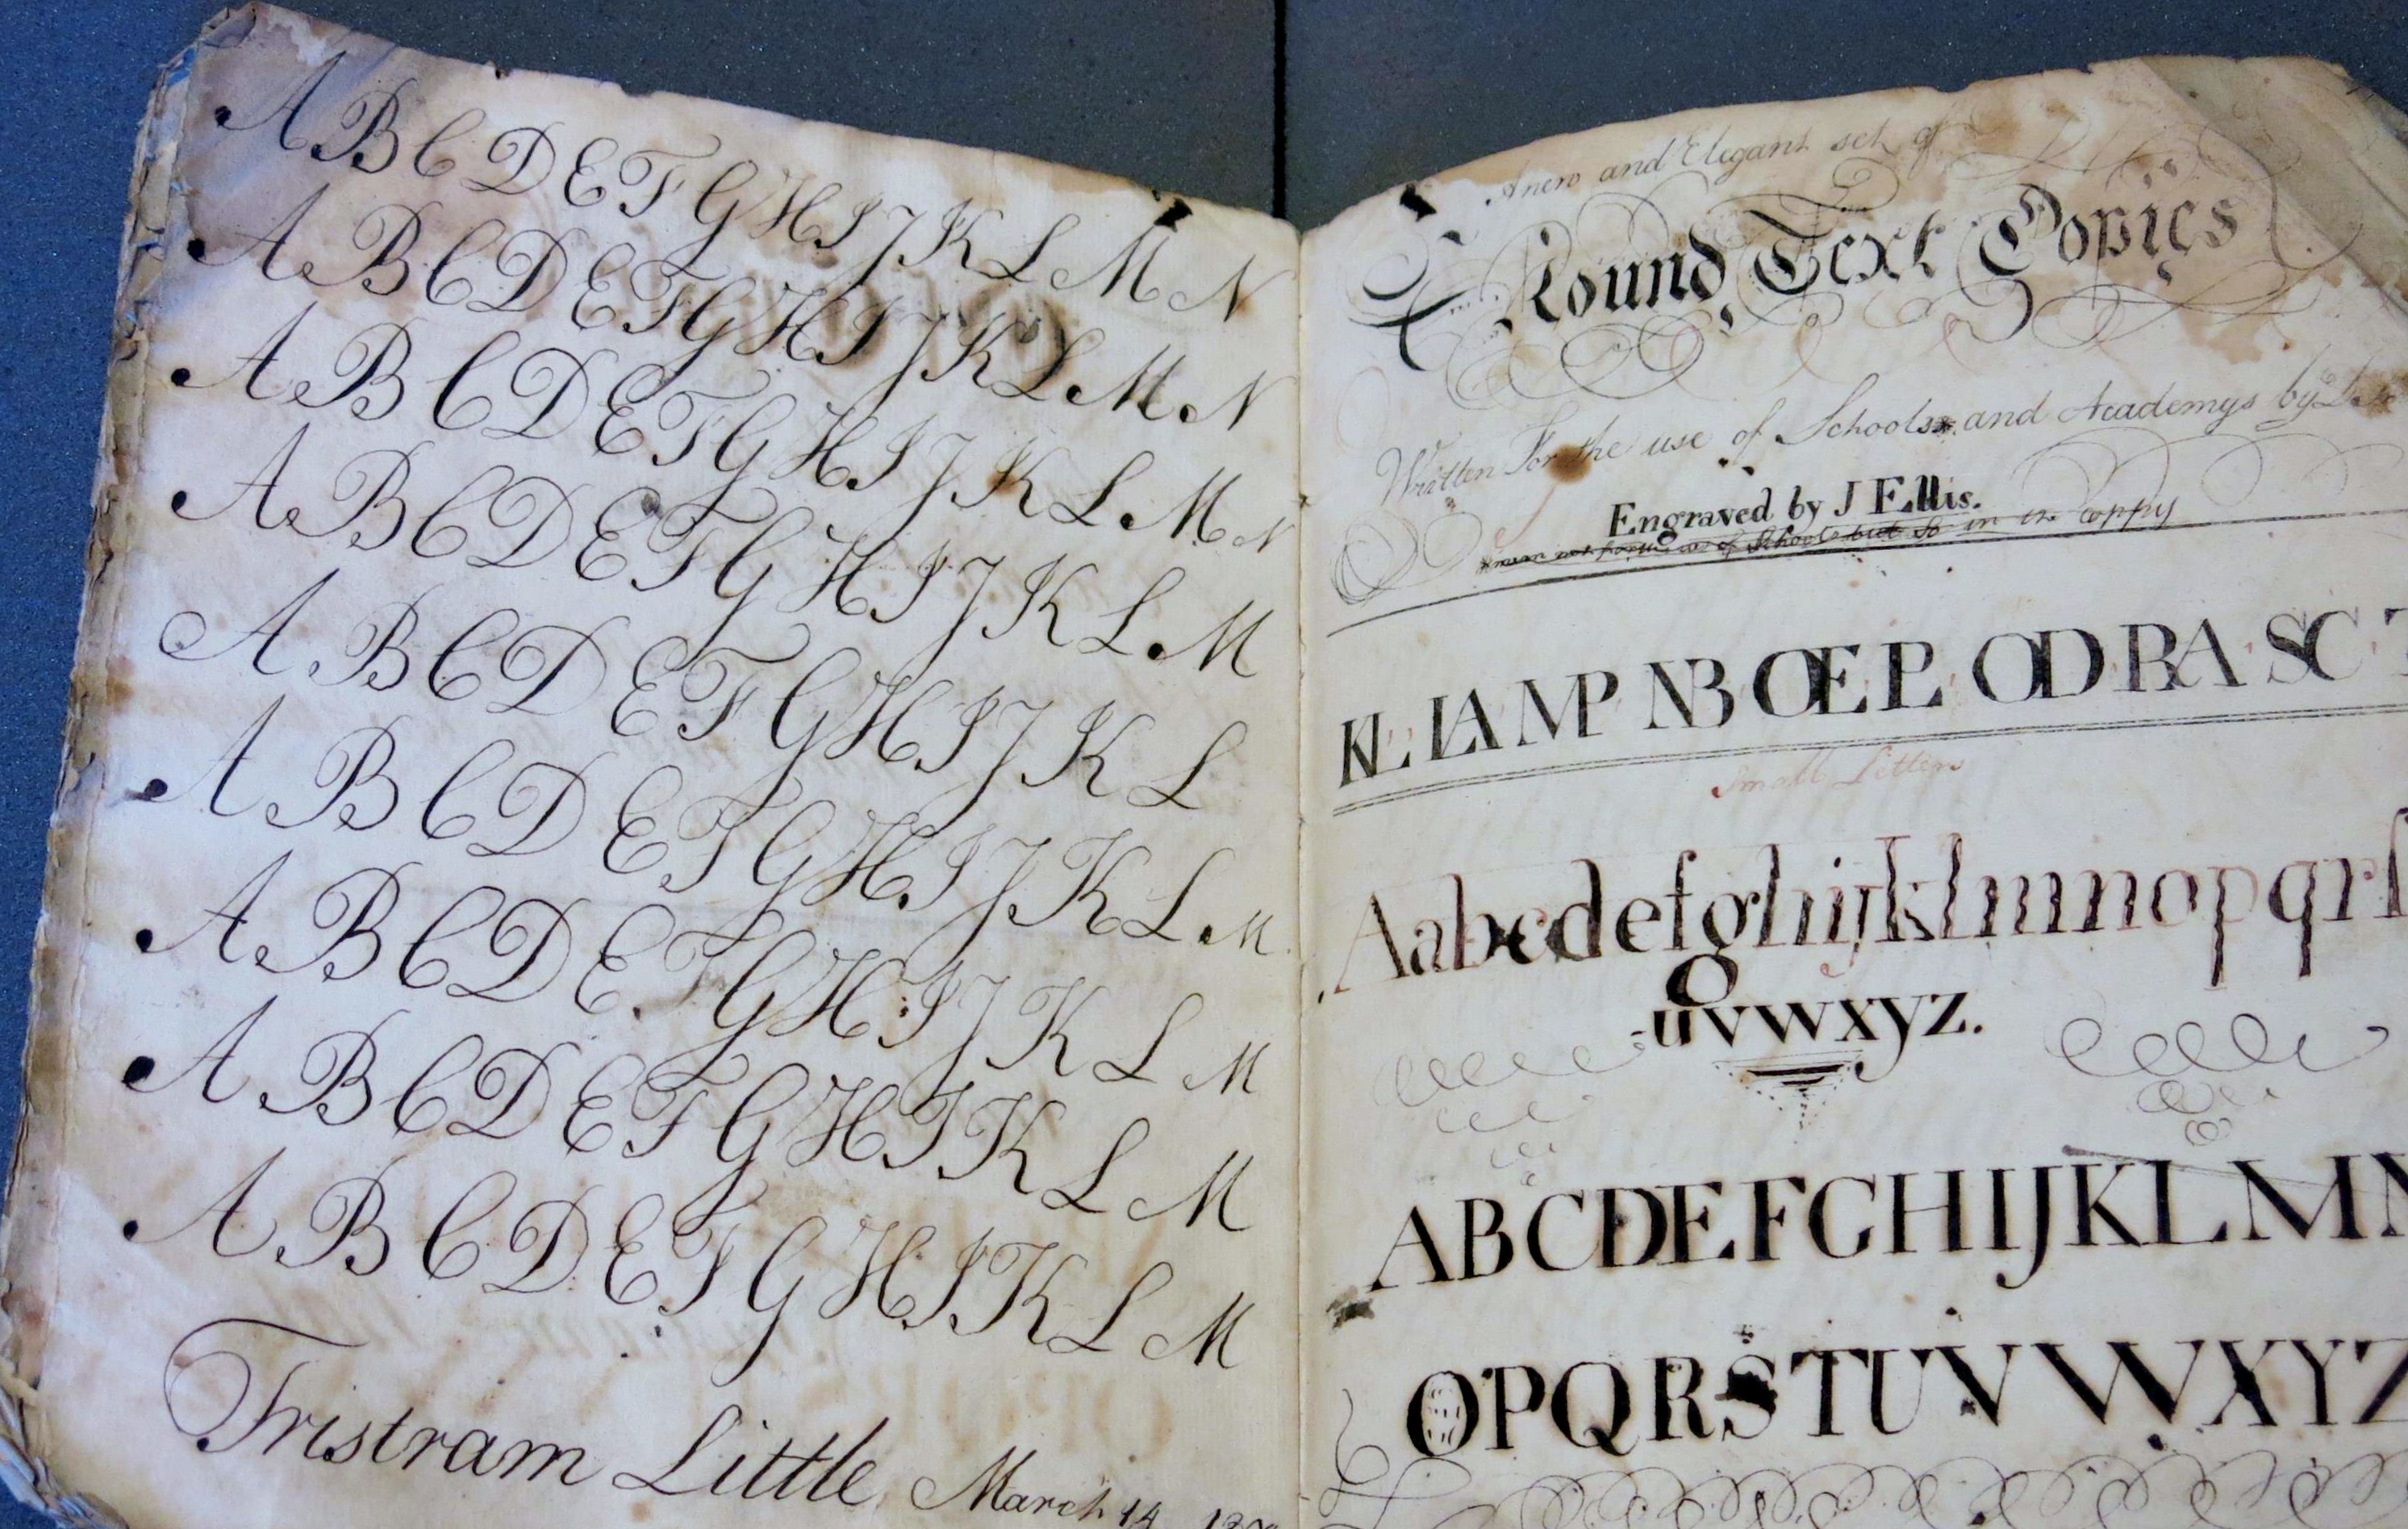 A B C D E F G H I J K L M N
A B C D E F G H I J K L M N
A B C D E F G H I J K L M N
A B C D E F G H I J K L M
A B C D E F G H I J K L
A B C D E F G H I J K L M
A B C D E F G H I J K L M
A B C D E F G H I K L M
A B C D E F G H I K L M
Tristram Little March 14
Anew and Elegant set of
Round Text Copies
Written For the use of Schools and Academys by
Engraved by J Ellis.
use of Schools but so in the coppy
KL LA MP NB OE PL OD RA SC
Small Letters
Aabcdefghijklmnopqrſ
g
uvwxyz.
ABCDEFGHIJKLMN
OPQRSTUVWXYZ